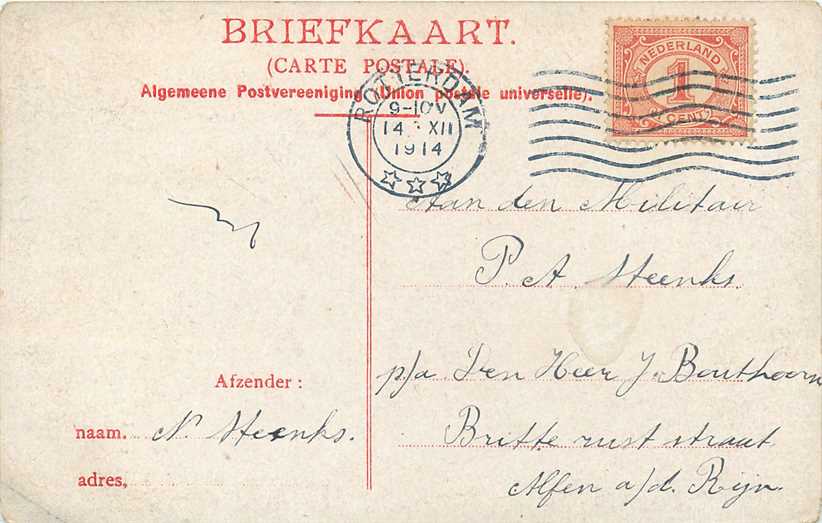 BRIEFKAART.
(CARTE POSTALE).
Algemeene Postvereeniging (Union postale universelle).
NEDERLAND
1
CENT
ROTTERDAM
9-10V
14 XII
1914
Aan den Militair
P. A. Steenks.
p/a Den Heer J. Bouthoorn
Britte rust straat
Alfen a/d. Rijn.
Afzender:
naam. N. Steenks.
adres,